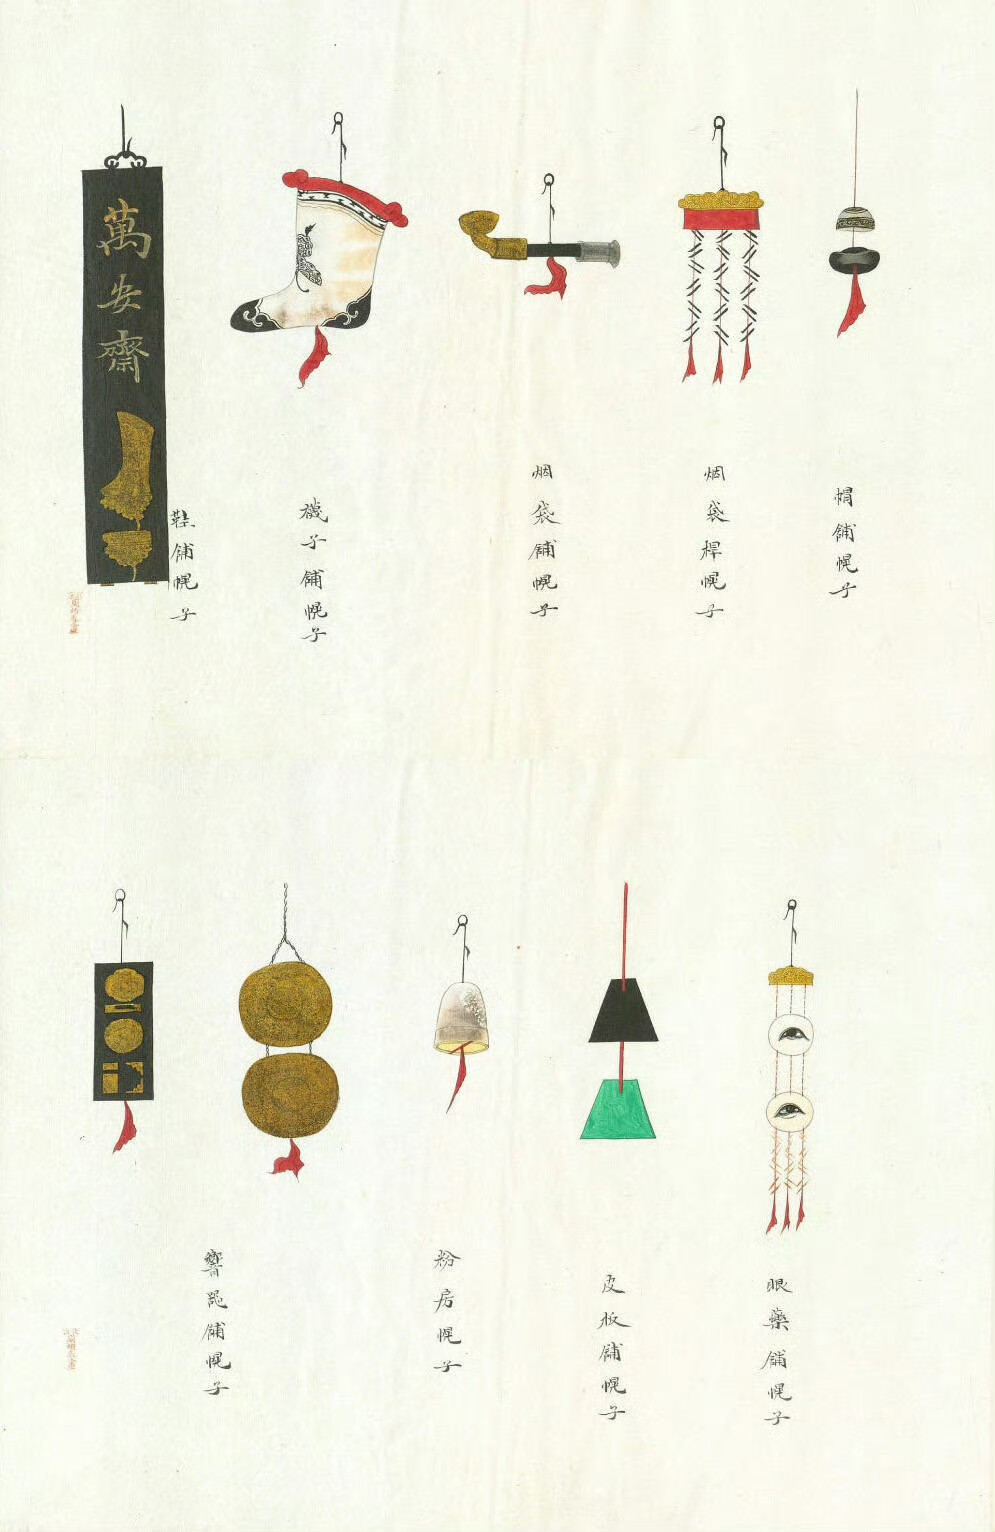 帽舖幌子
烟袋桿幌子
烟袋舖幌子
襪子舖幌子
鞋舖幌子
萬安齋
眼藥舖幌子
皮板舖幌子
粉房幌子
響器舖幌子